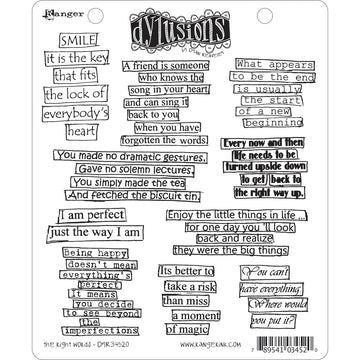 Ranger
dylusions
BY DYAN REAVELEY
SMILE
it is the key
that fits
the lock of
everybody's
heart
A friend is someone
who knows the
song in your heart
and can sing it
back to you
when you have
forgotten the words.
What appears
to be the end
is usually
the start
of a new
beginning
Every now and then
life needs to be
turned upside down
to get back to
the right way up.
You made no dramatic gestures,
Gave no solemn lectures,
You simply made the tea
And fetched the biscuit tin.
I am perfect
just the way I am
Enjoy the little things in life ...
for one day you'll look
back and realize
they were the big things
Being happy
doesn't mean
everything's
perfect
It means
you decide
to see beyond
the
imperfections
Its better to
take a risk
than miss
a moment
of magic
You can't
have everything.
Where would
you put it?
the Right Words - DYR34520
www.RANGERINK.com
7 89541 03452 0